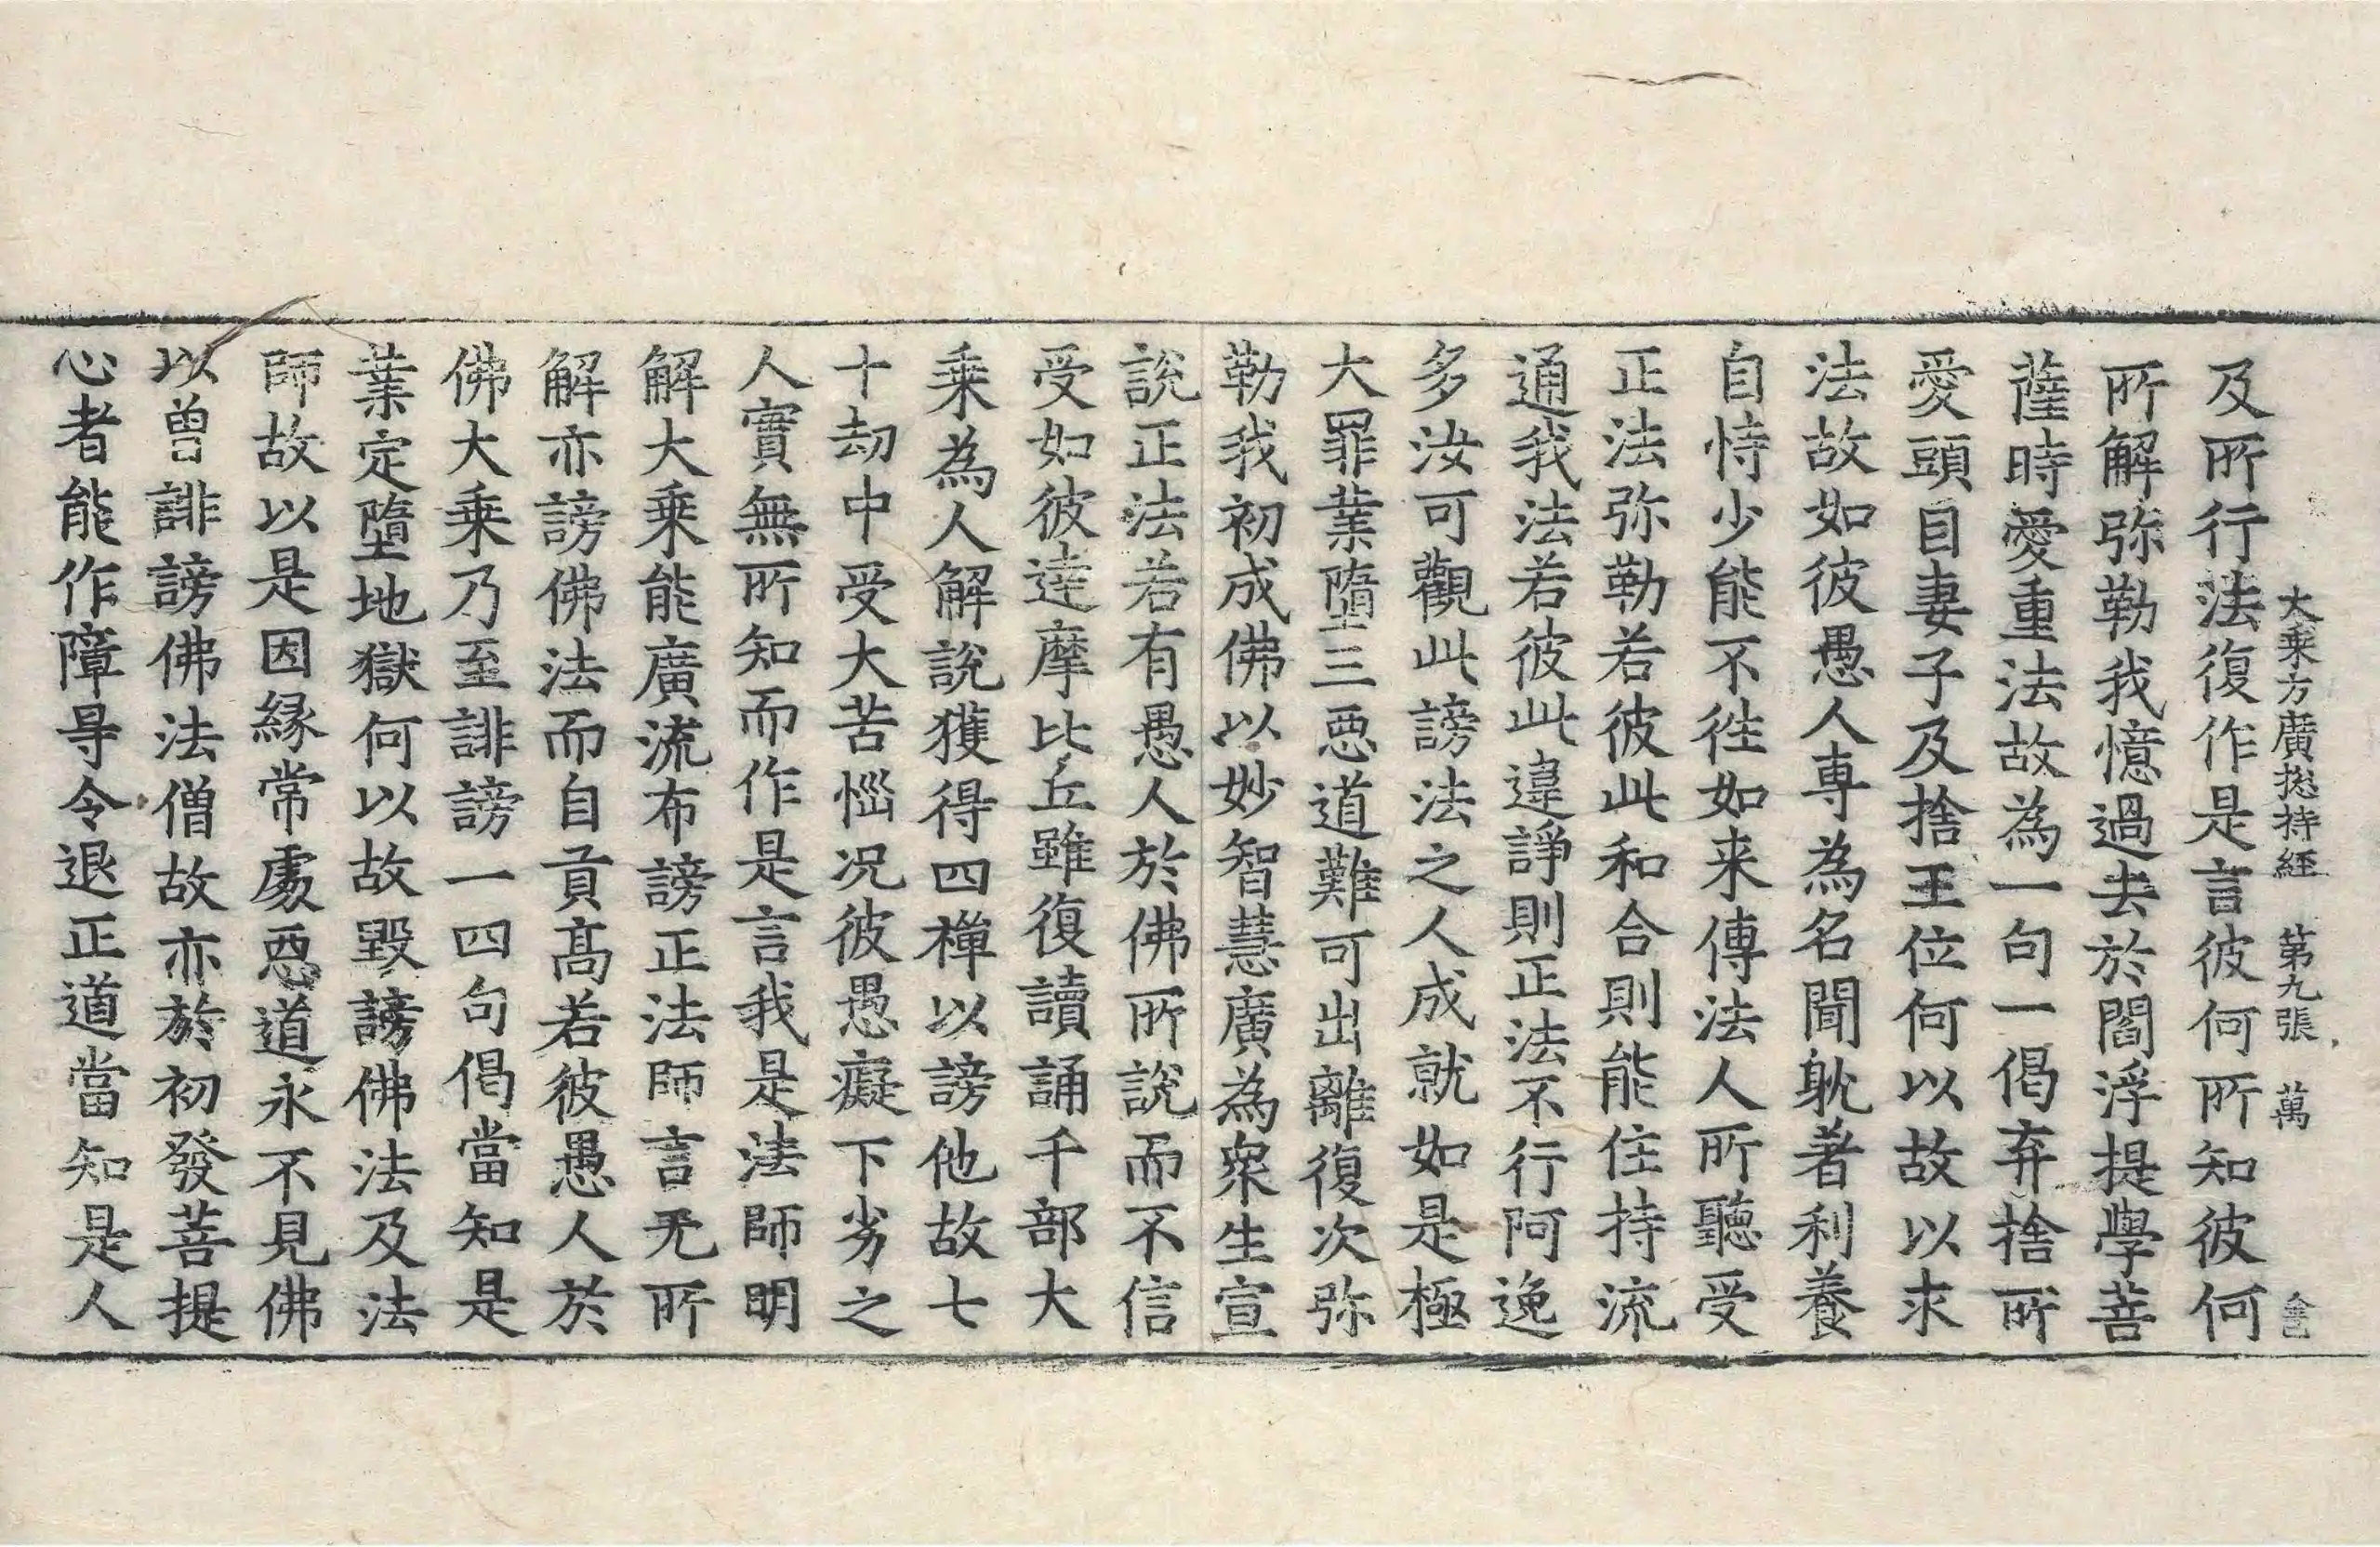 大乗方廣揔持經 第九張 萬
及所行法復作是言彼何所知彼何
所解弥勒我憶過去於閻浮提學菩
薩時愛重法故為一句一偈弃捨所
愛頭目妻子及捨王位何以故以求
法故如彼愚人専為名聞躭著利養
自恃少能不往如来傳法人所聽受
正法弥勒若彼此和合則能住持流
通我法若彼此違諍則正法不行阿逸
多汝可觀此謗法之人成就如是極
大罪業墮三惡道難可出離復次弥
勒我初成佛以妙智慧廣為衆生宣
說正法若有愚人於佛所說而不信
受如彼達摩比丘雖復讀誦千部大
乗為人解說獲得四禅以謗他故七
十劫中受大苦惱况彼愚癡下劣之
人實無所知而作是言我是法師明
解大乗能廣流布謗正法師言无所
解亦謗佛法而自貢髙若彼愚人於
佛大乗乃至誹謗一四句偈當知是
業定墮地獄何以故毀謗佛法及法
師故以是因緣常處惡道永不見佛
以曾誹謗佛法僧故亦於初發菩提
心者能作障㝵令退正道當知是人